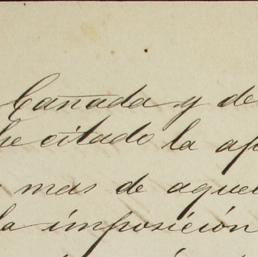 Cañada y de
he citado la ap
mas de aquel
la imposición